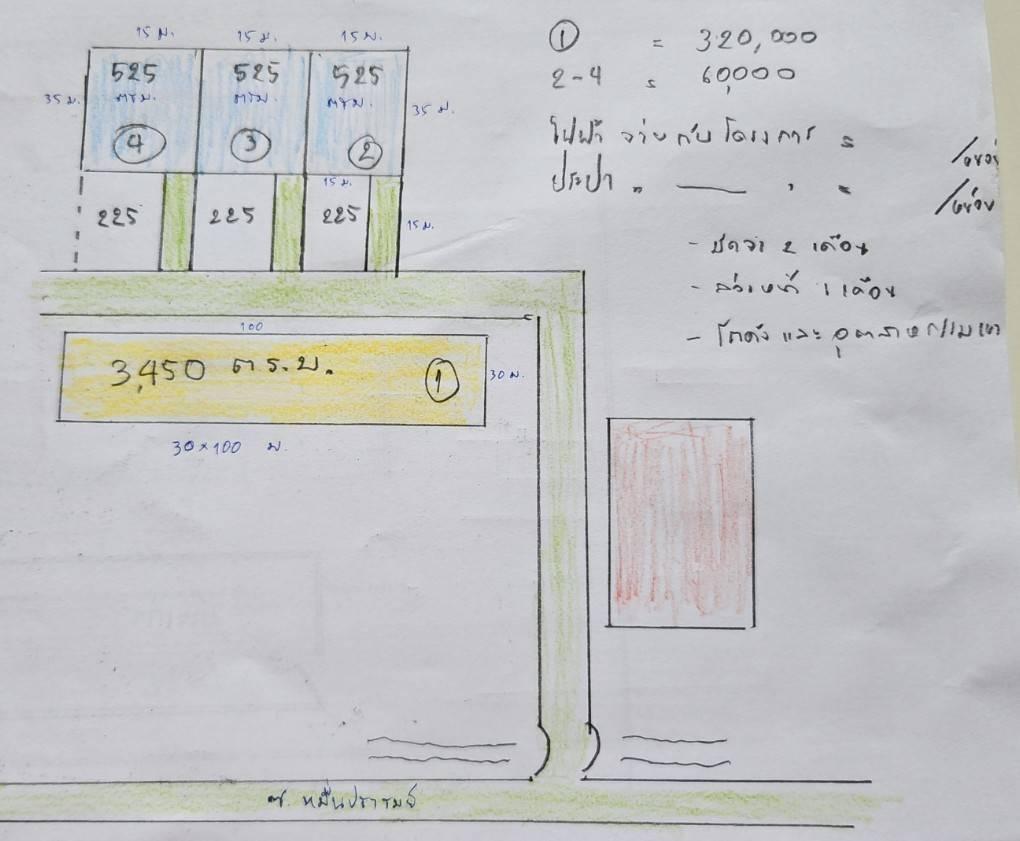 15 ม. 15 ม. 15 ม.
525 525 525
35 ม. ตรม. ตรม. ตรม. 35 ม.
4 3 2
15 ม.
225 225 225 15 ม.
100
3,450 ตร.ม. 1 30 ม.
30×100 ม.
1 = 320,000
2-4 = 60,000
ไฟฟ้า จ่ายกับโครงการ =
/หน่วย
ประปา " —— " =
/หน่วย
- มัดจำ 2 เดือน
- ล่วงหน้า 1 เดือน
- โกดัง และ
ซ.